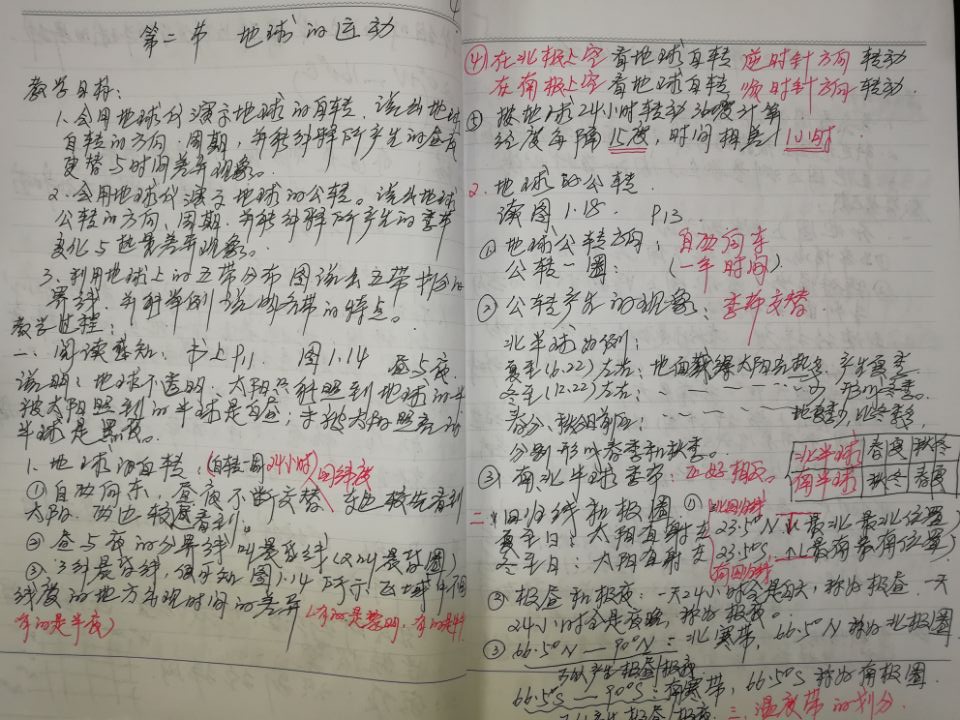 第二节 地球的运动
教学目标:
1.会用地球仪演示地球的自转。说出地球
自转的方向、周期,并能解释所产生的昼夜
更替与时间差异现象。
2.会用地球仪演示地球的公转。说出地球
公转的方向、周期,并能解释所产生的季节
变化与差异现象。
3.利用地球上的五带分布图说出五带划分的
界线,并举例说明各带的特点。
教学过程:
一、阅读感知: 书上P11 图1.14 昼与夜.
说明:地球不透明,太阳只能照到地球的一半
被太阳照到的半球是白昼;未被太阳照亮的
半球是黑夜。
1.地球的自转:(自转一周24小时) 同纬度
①自西向东,昼夜不断交替 东边较先看到
太阳,西边较晚看到。
②昼与夜的分界线叫晨昏线(又叫晨昏圈)
③了解晨昏线,便可知图1.14所示,区域中不同
经度的地方出现时间的差异(有的是黎明,有的是
有的是半夜)
④在北极上空看地球自转 逆时针方向转动
在南极上空看地球自转 顺时针方向转动
⑤按地球24小时转动360度计算
经度每隔15度,时间相差1小时
2.地球的公转.
读图1.18. P13.
①地球公转方向:自西向东
公转一圈: (一年时间)
②公转产生的现象:季节交替
北半球为例:
夏至(6.22)左右:地面获得太阳光热多,产生夏季
冬至(12.22)左右: ~ ~ ~ ~ ~ ~ 少,形成冬季。
春分、秋分前后:
分别形成春季和秋季。
③南、北半球季节:正好相反。
北半球 春夏 秋冬
南半球 秋冬 春夏
二、回归线和极圈 ① 北回归线
夏至日:太阳直射 23.5°N 最北位置
冬至日:太阳直射 23.5°S 最南位置
南回归线
②极昼和极夜:一天24小时全是白天,称为极昼,一天
24小时全是夜晚,称为极夜。
③ 66.5°N—90°N:北寒带,66.5°N称为北极圈
可以产生极昼极夜
66.5°S—90°S:南寒带,66.5°S称为南极圈.
三、温度带的划分.